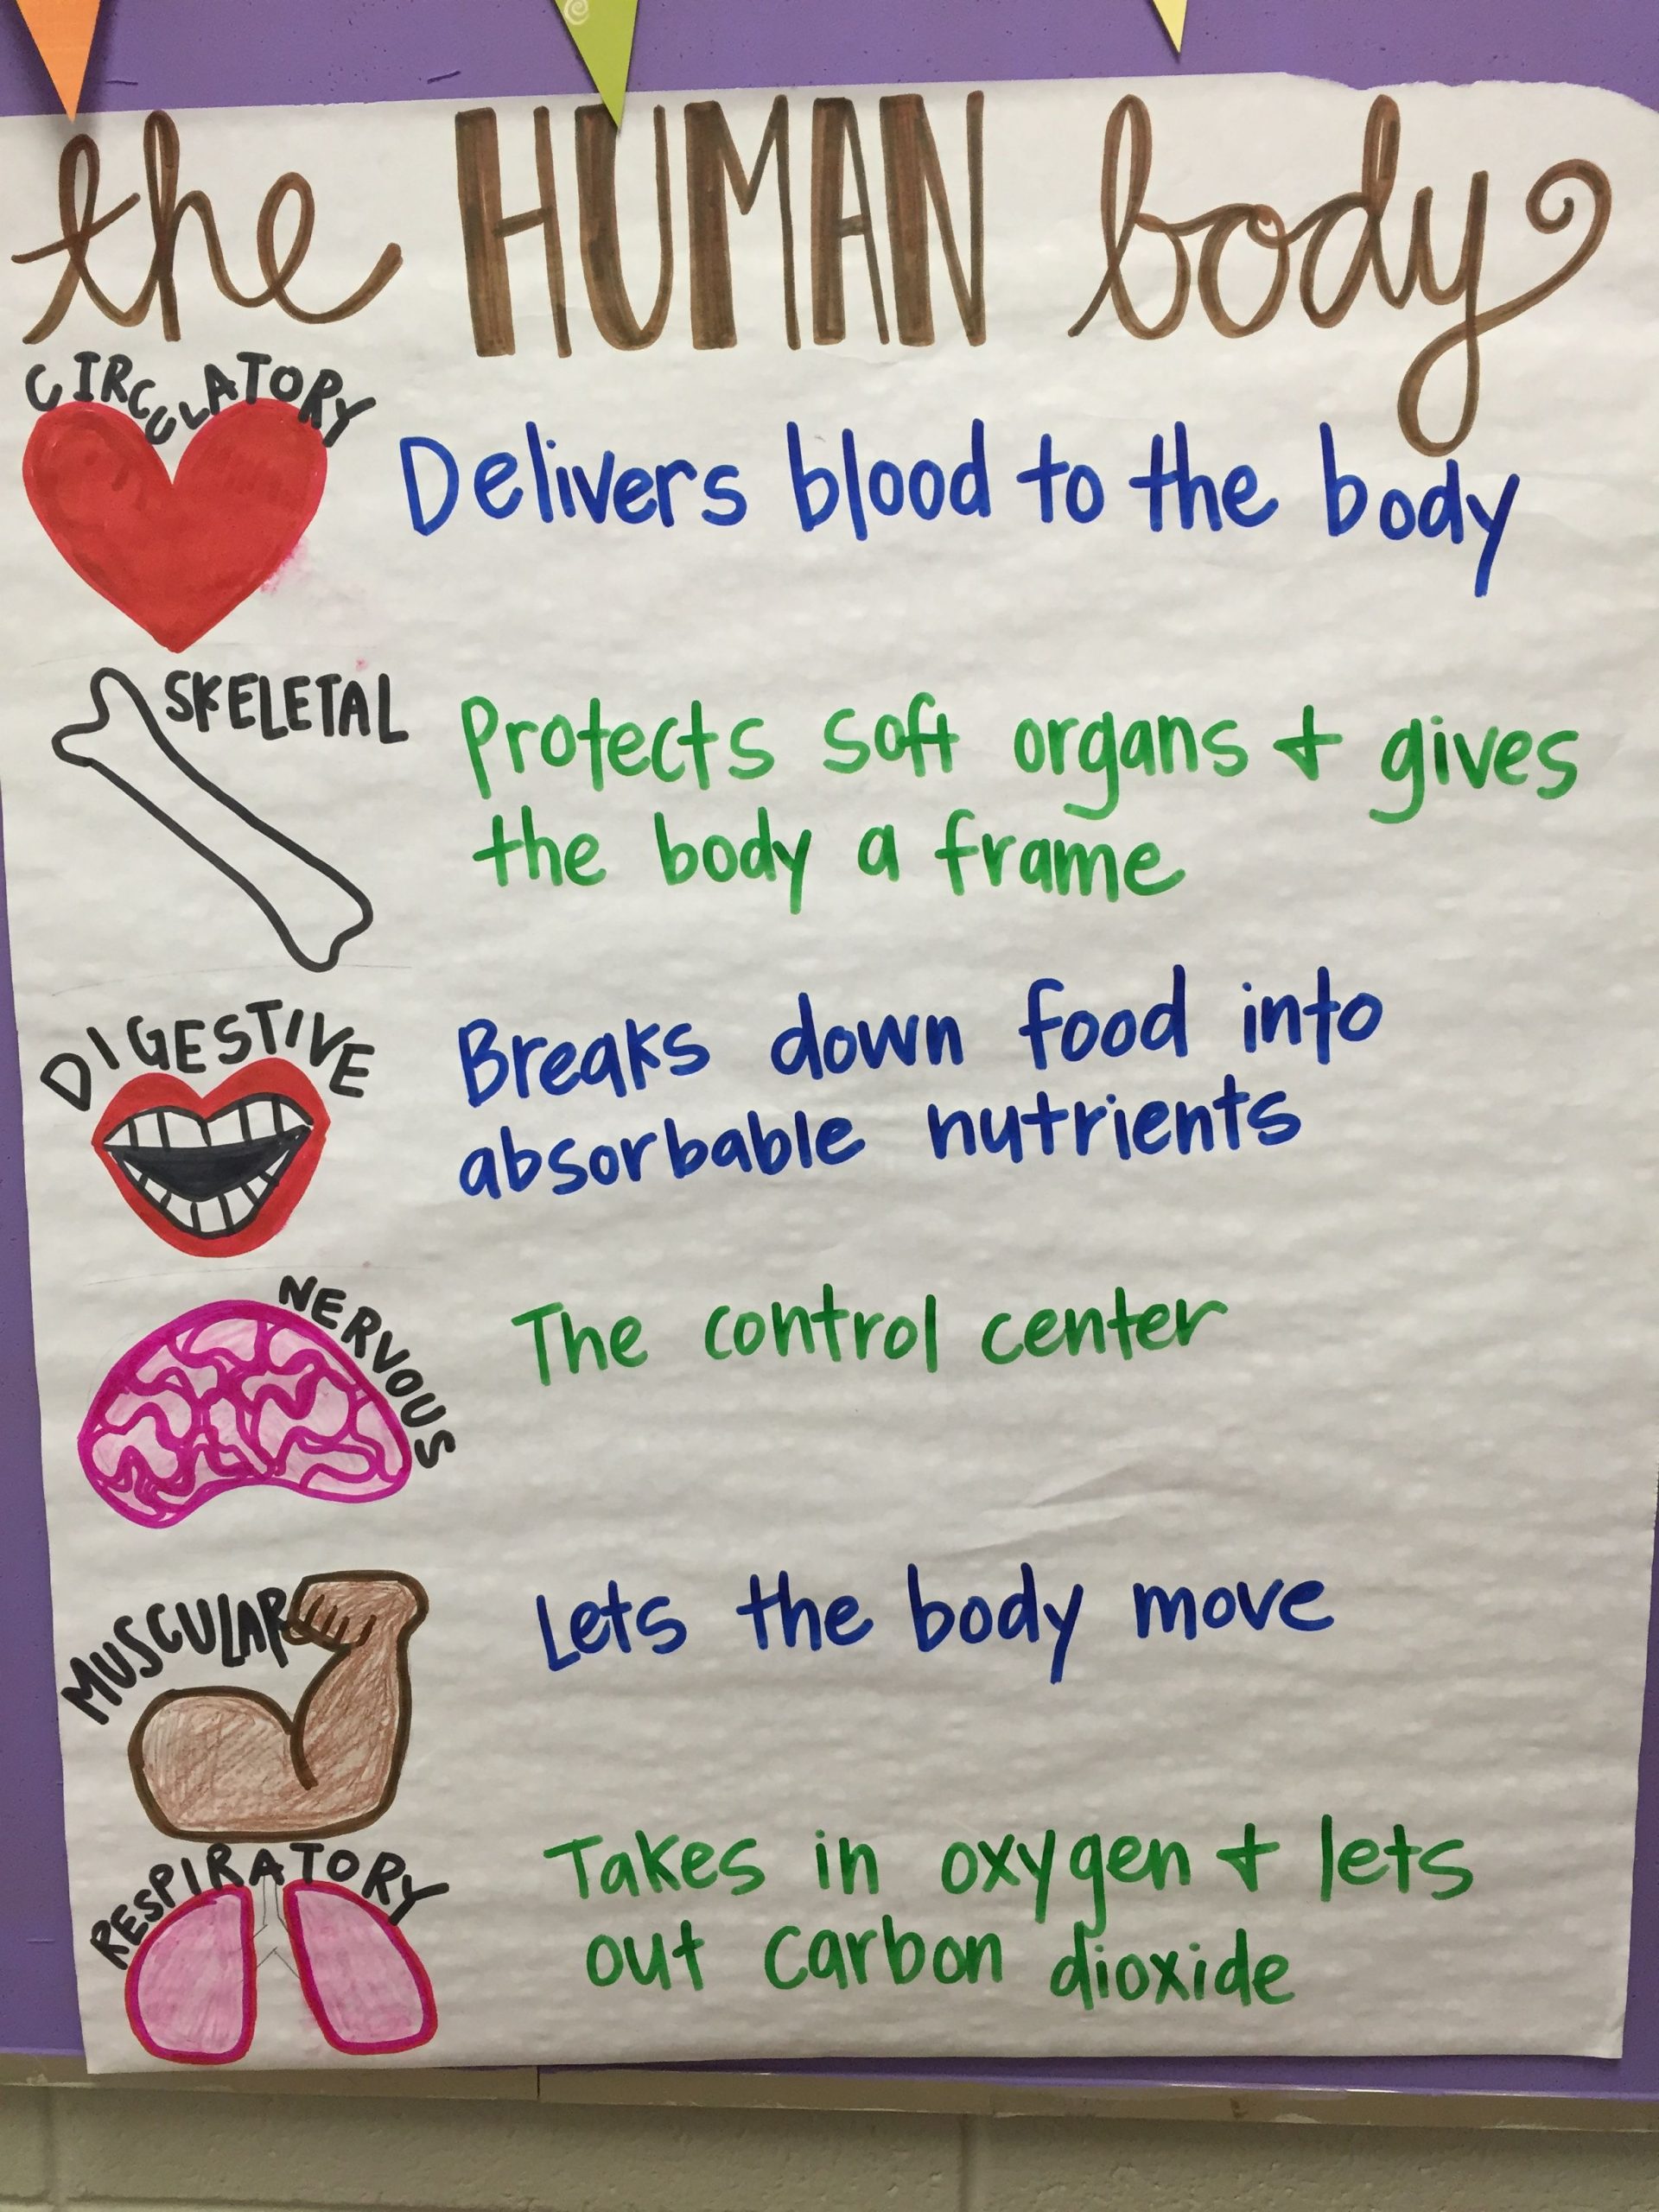 the HUMAN body
CIRCULATORY
Delivers blood to the body
SKELETAL
Protects soft organs + gives
the body a frame
DIGESTIVE
Breaks down food into
absorbable nutrients
NERVOUS
The control center
MUSCULAR
Lets the body move
RESPIRATORY
Takes in oxygen + lets
out carbon dioxide